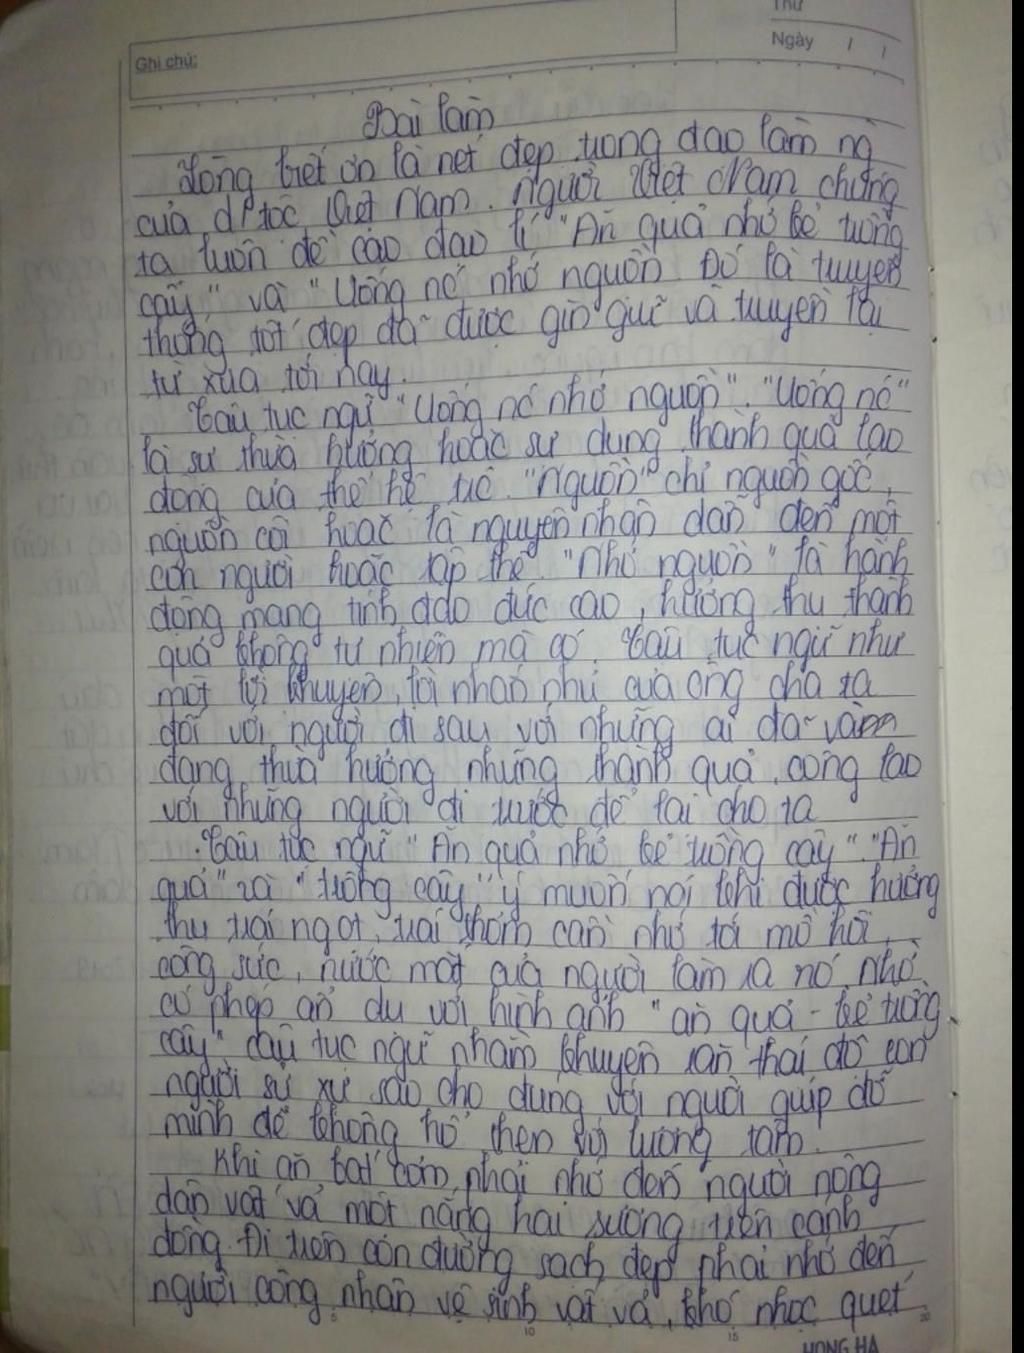 Thứ
Ghi chú:
Ngày / /
Bài làm
Lòng biết ơn là nét đẹp trong đạo làm ng
của dt tộc Việt Nam. Người Việt Nam chúng
ta luôn đề cao đạo lí "Ăn quả nhớ kẻ trồng
cây" và "Uống nc nhớ nguồn Đó là truyền
thống tốt đẹp đã được gìn giữ và truyền lại
từ xưa tới nay.
Câu tục ngữ "Uống nc nhớ nguồn". "Uống nc"
là sự thừa hưởng hoặc sử dụng thành quả lao
động của thế hệ trc. "Nguồn" chỉ nguồn gốc,
nguồn cội hoặc là nguyên nhân dẫn đến một
con người hoặc tập thể. "Nhớ nguồn" là hành
động mang tính đạo đức cao, hưởng thụ thành
quả không tự nhiên mà có. Câu tục ngữ như
một lời khuyên, lời nhắn nhủ của ông cha ta
đối với người đi sau với những ai đã và
đang thừa hưởng những thành quả, công lao
với những người đi trước để lại cho ta
Câu tục ngữ "Ăn quả nhớ kẻ trồng cây". "Ăn
quả" và "trồng cây" ý muốn nói khi được hưởng
thụ trái ngọt, trái thơm cần nhớ tới mồ hôi,
công sức, nước mắt của người làm ra nó. Nhờ
có phép ẩn dụ với hình ảnh "ăn quả - kẻ trồng
cây" câu tục ngữ nhằm khuyên răn thái độ con
người sử xự sao cho đúng với người giúp đỡ
mình để không hổ thẹn với lương tâm.
Khi ăn bát cơm, phải nhớ đến người nông
dân vất vả một nắng hai sương trên cánh
đồng. Đi trên con đường sạch đẹp phải nhớ đến
người công nhân vệ sinh vất vả, khó nhọc quét
5 10 15 20
HONG HA